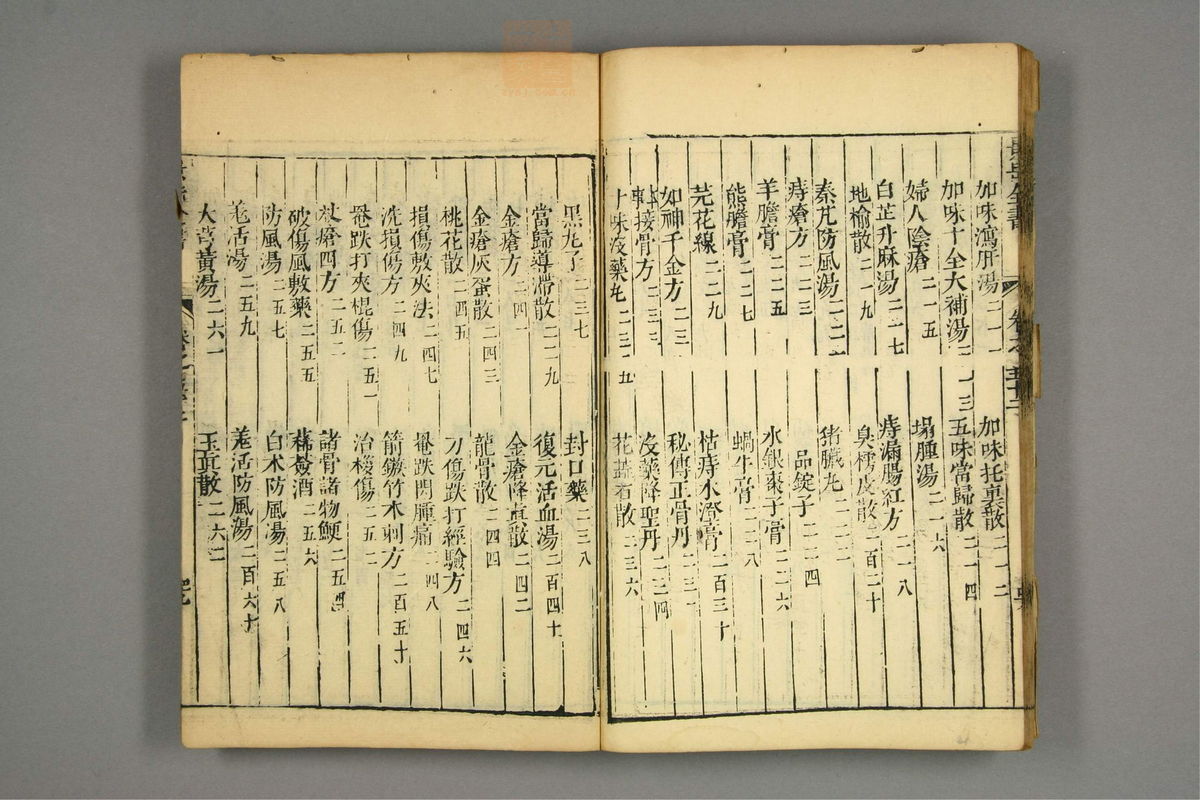 景岳全書
卷之五十二
加味瀉肝湯二一一
加味托裏散二一二
加味十全大補湯二一三
五味當歸散二一四
婦人陰瘡二一五
塌腫湯二一六
白芷升麻湯二一七
痔漏腸紅方二一八
地榆散二一九
臭樗皮散二百二十
秦艽防風湯二二一
猪臟丸二二二
痔瘡方二二三
品錠子二二四
羊膽膏二二五
水銀棗子膏二二六
熊膽膏二二七
蝸牛膏二二八
芫花線二二九
枯痔水澄膏二百三十
如神千金方二三一
秘傳正骨丹二三二
接骨方二三三
沒藥降聖丹二三四
十味沒藥丸二三五
花蕊石散二三六
黑丸子二三七
封口藥二三八
當歸導滯散二三九
復元活血湯二百四十
金瘡方二四一
金瘡降眞散二四二
金瘡灰蛋散二四三
龍骨散二四四
桃花散二四五
刀傷跌打經驗方二四六
損傷敷夾法二四七
罨跌閃腫痛二四八
洗損傷方二四九
箭鏃竹木刺方二百五十
罨跌打夾棍傷二五一
治梭傷二五二
杖瘡四方二五三
諸骨諸物鯁二五四
破傷風敷藥二五五
蠲發酒二五六
防風湯二五七
白术防風湯二五八
羌活湯二五九
羗活防風湯二百六十
大芎黃湯二六一
玉眞散二六二